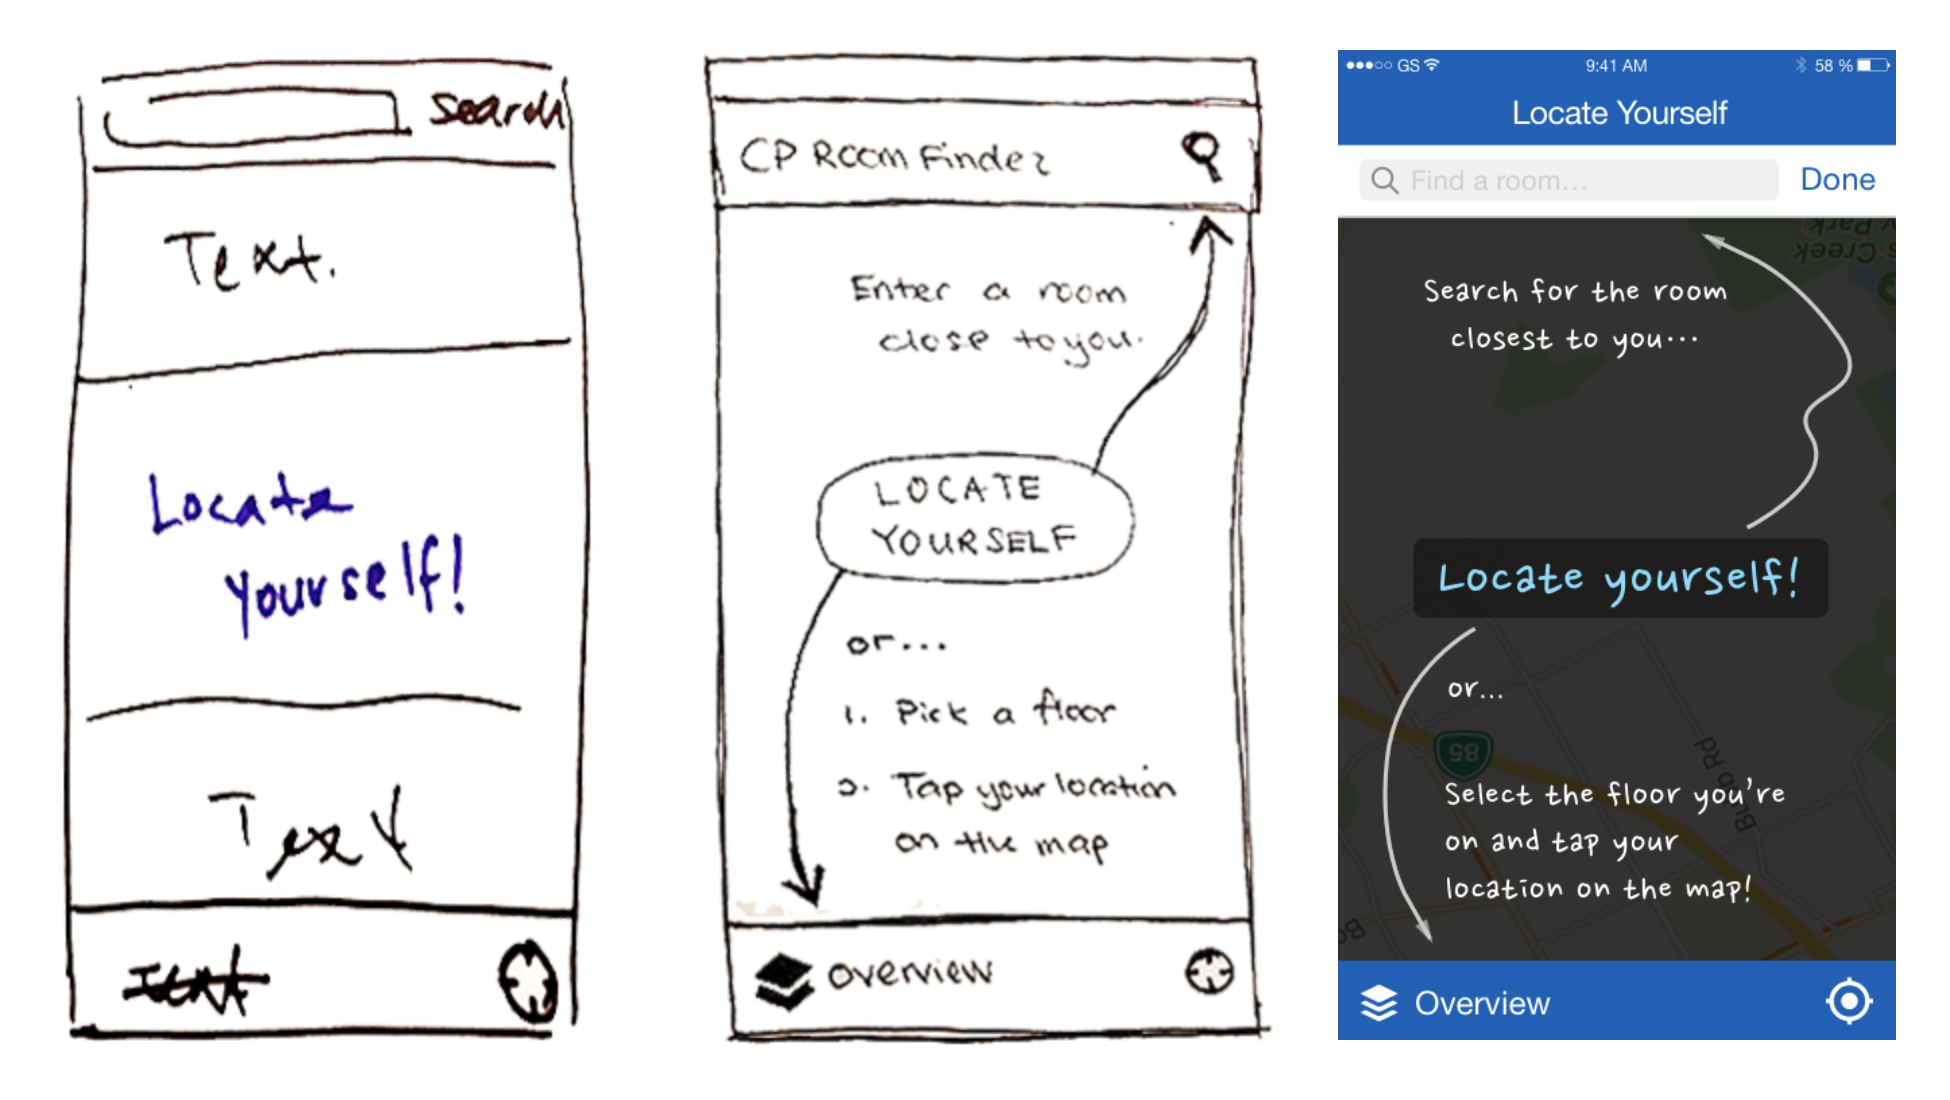 Search
Text.
Locate
yourself!
Text
Text
CP Room Finder
Enter a room
close to you.
LOCATE
YOURSELF
or...
1. Pick a floor
2. Tap your location
on the map
Overview
GS
9:41 AM
58 %
Locate Yourself
Find a room...
Done
Park
Creek
Search for the room
closest to you...
Locate yourself!
or...
85
Select the floor you're
on and tap your
location on the map!
Overview